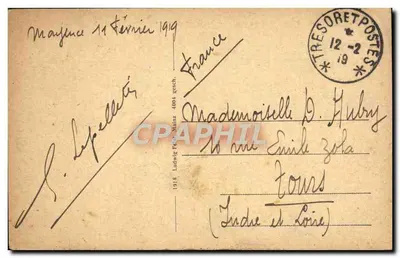 Mayence 11 Février 1919
France
TRESOR ET POSTES
12-2
19
Mademoiselle D. Aubry
10 rue Emile Zola
Tours
(Indre et Loire)
CPARAMA
1918 Ludwig
Mainz 4004 gesch.